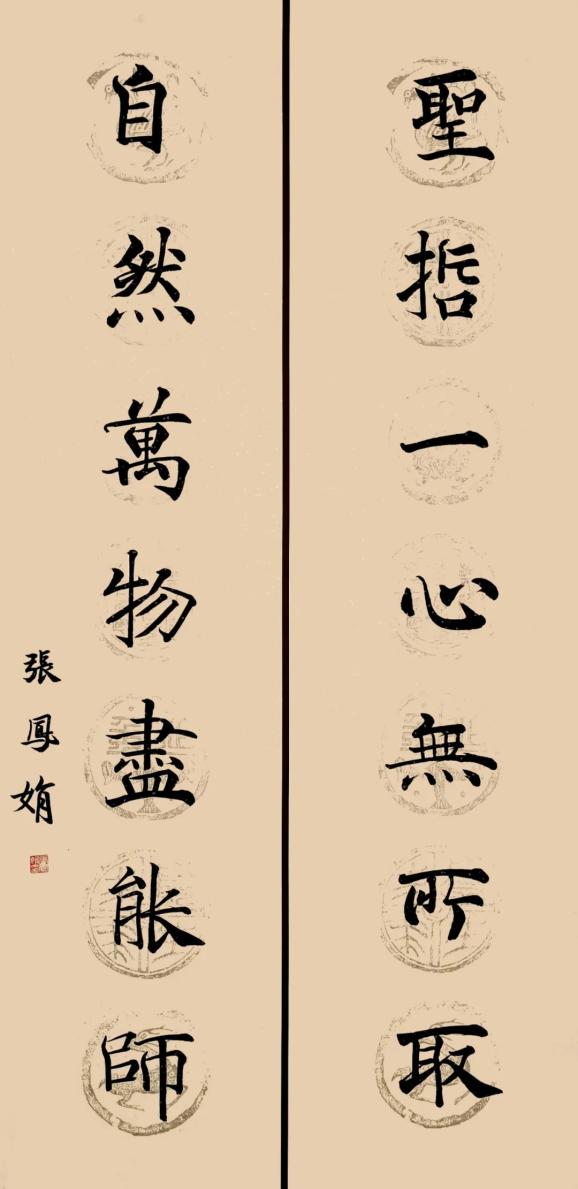 聖哲一心無所取
自然萬物盡能師
張鳳娟